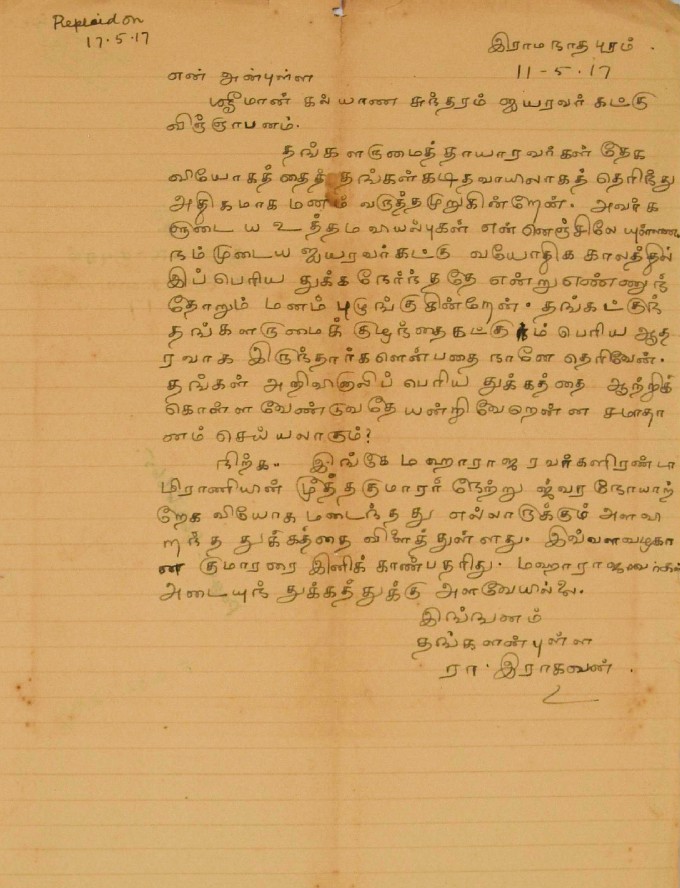 Replaid on
17.5.17
இராமநாதபுரம்.
11-5.17
என் அன்புள்ள
ஸ்ரீமான் கல்யாண சுந்தரம் ஐயரவர்கட்கு
விஞ்ஞாபனம்.
தங்களருமைத்தாயாரவர்கள் தேக
வியோகத்தைத் தங்கள்கடிதவாயிலாகத் தெரிந்து
அதிகமாக மனம் வருத்தமுறுகின்றேன். அவர்க
ளுடைய உத்தமவியல்புகள் என்னெஞ்சிலேயுள்ளன.
நம்முடைய ஐயரவர்கட்கு வயோதிக காலத்தில்
இப்பெரிய துக்கநேர்ந்ததே என்று எண்ணுந்
தோறும் மனம் புழுங்குகின்றேன். தங்கட்குந்
தங்களருமைக் குழந்தைகட்கும் பெரிய ஆத
ரவாக இருந்தார்களென்பதை நானே தெரிவேன்.
தங்கள் அறிவினாலிப் பெரிய துக்கத்தை ஆற்றிக்
கொள்ளவேண்டுவதேயன்றி வேறென்ன சமாதா
னம் செய்யலாகும்?
நிற்க. இங்கு மஹாராஜரவர்களிரண்டா
மிராணியின் மூத்தகுமாரர் நேற்று ஜ்வரநோயாற்
றேக வியோகமடைந்தது எல்லாருக்கும் அளவி
றந்த துக்கத்தை விளைத்துள்ளது. இவ்வளவழகா
ன குமாரரை இனிக் காண்பதரிது. மஹாராஜரவர்கள்
அடையுந் துக்கத்துக்கு அளவேயில்லை.
இங்ஙனம்
தங்களன்புள்ள
ரா. இராகவன்.